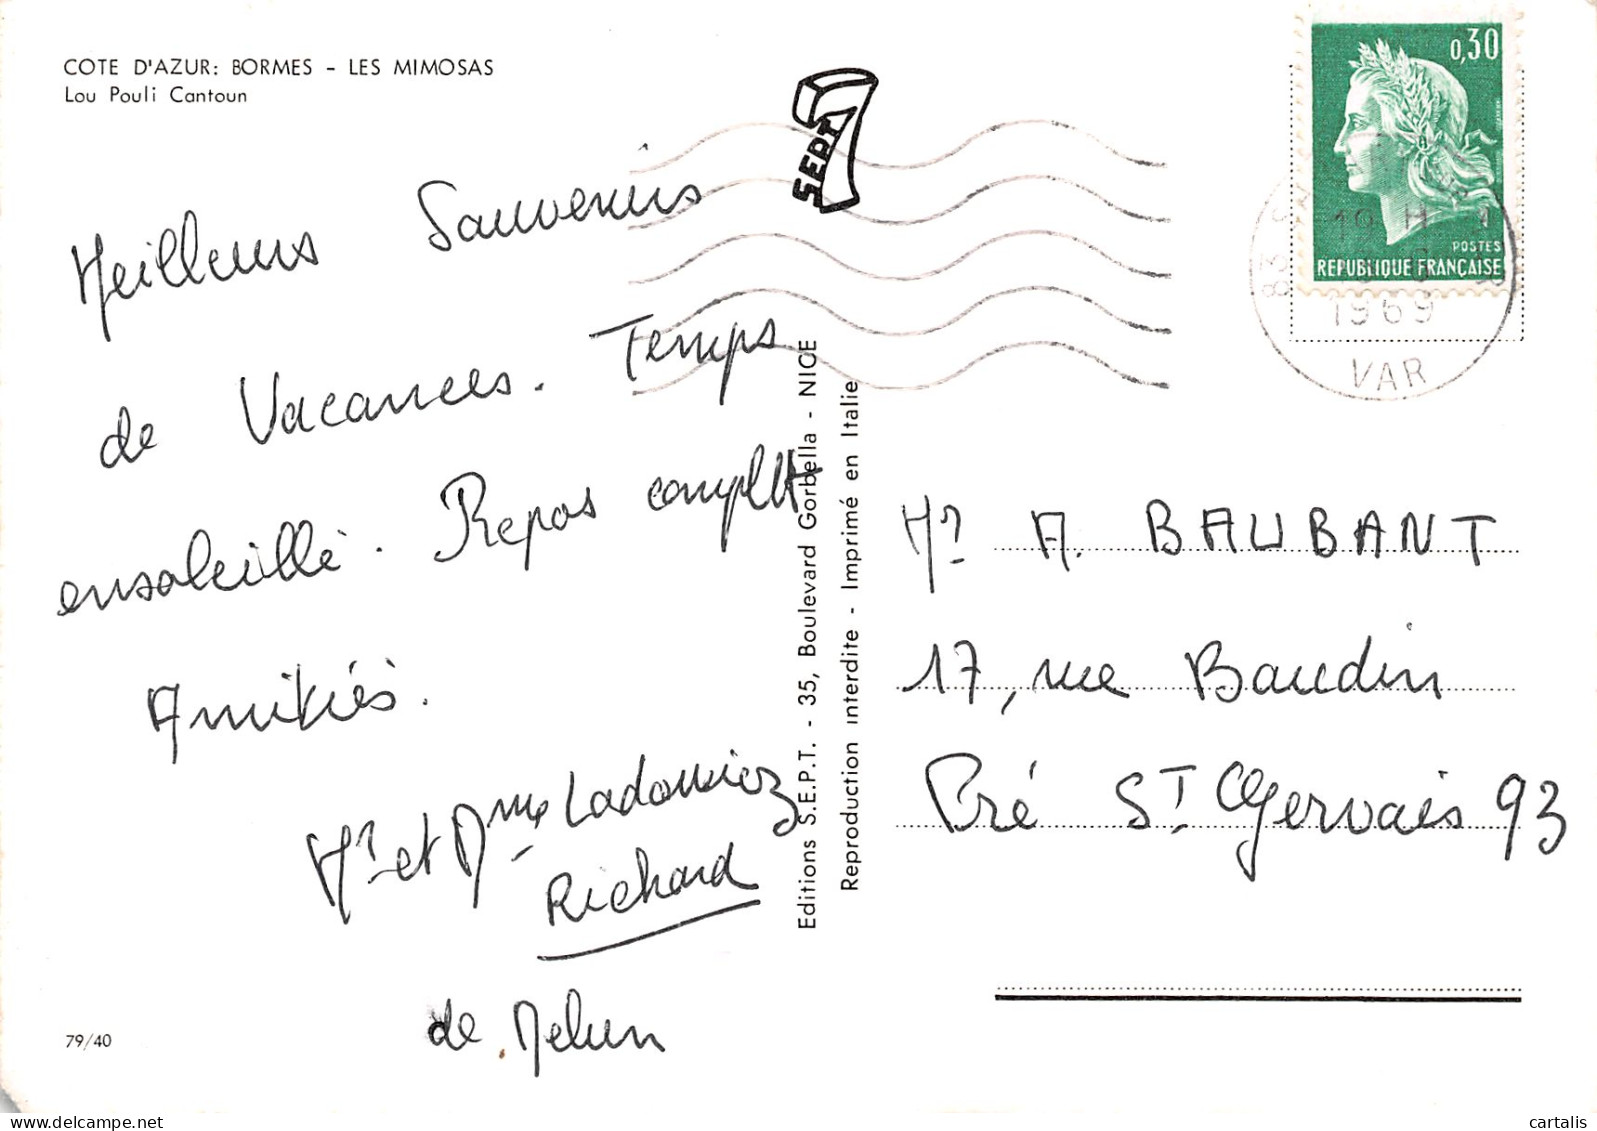 COTE D'AZUR: BORMES - LES MIMOSAS
Lou Pouli Cantoun
SEPT
0,30
POSTES
REPUBLIQUE FRANÇAISE
83
18 H
1969
VAR
Meilleurs Souvenirs
de Vacances. Temps
ensoleillé. Repos complet
Amitiés.
Mr et Mme
Richard
de Melun
Editions S.E.P.T. - 35, Boulevard Gorbella - NICE
Reproduction interdite - Imprimé en Italie
Mr A. BAUBANT
17, rue Baudin
Pré St Gervais 93
79/40
cartalis